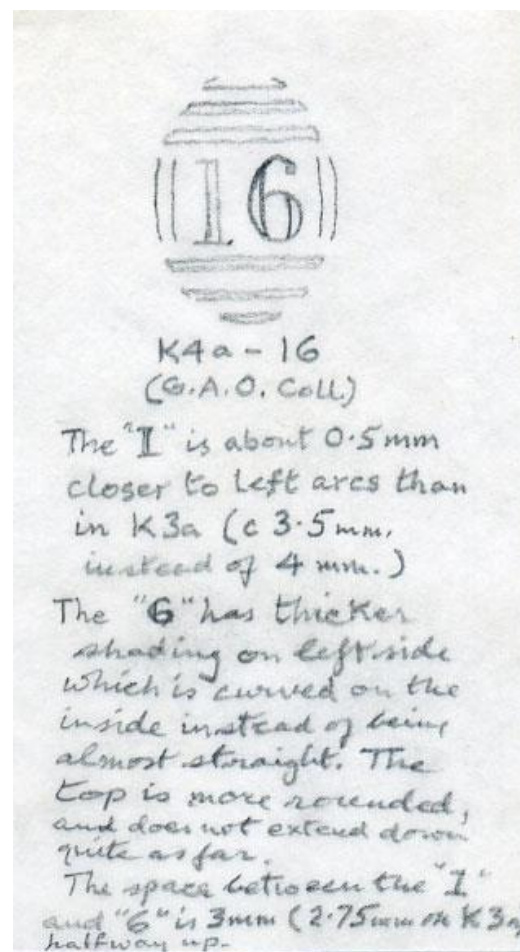 16
K4a - 16
(G.A.O. Coll.)
The "1" is about 0.5mm
closer to left arcs than
in K3a (c 3.5mm.
instead of 4 mm.)
The "6" has thicker
shading on left side
which is curved on the
inside instead of being
almost straight. The
top is more rounded,
and does not extend down
quite as far.
The space between the "1"
and "6" is 3mm (2.75mm on K3a)
halfway up.